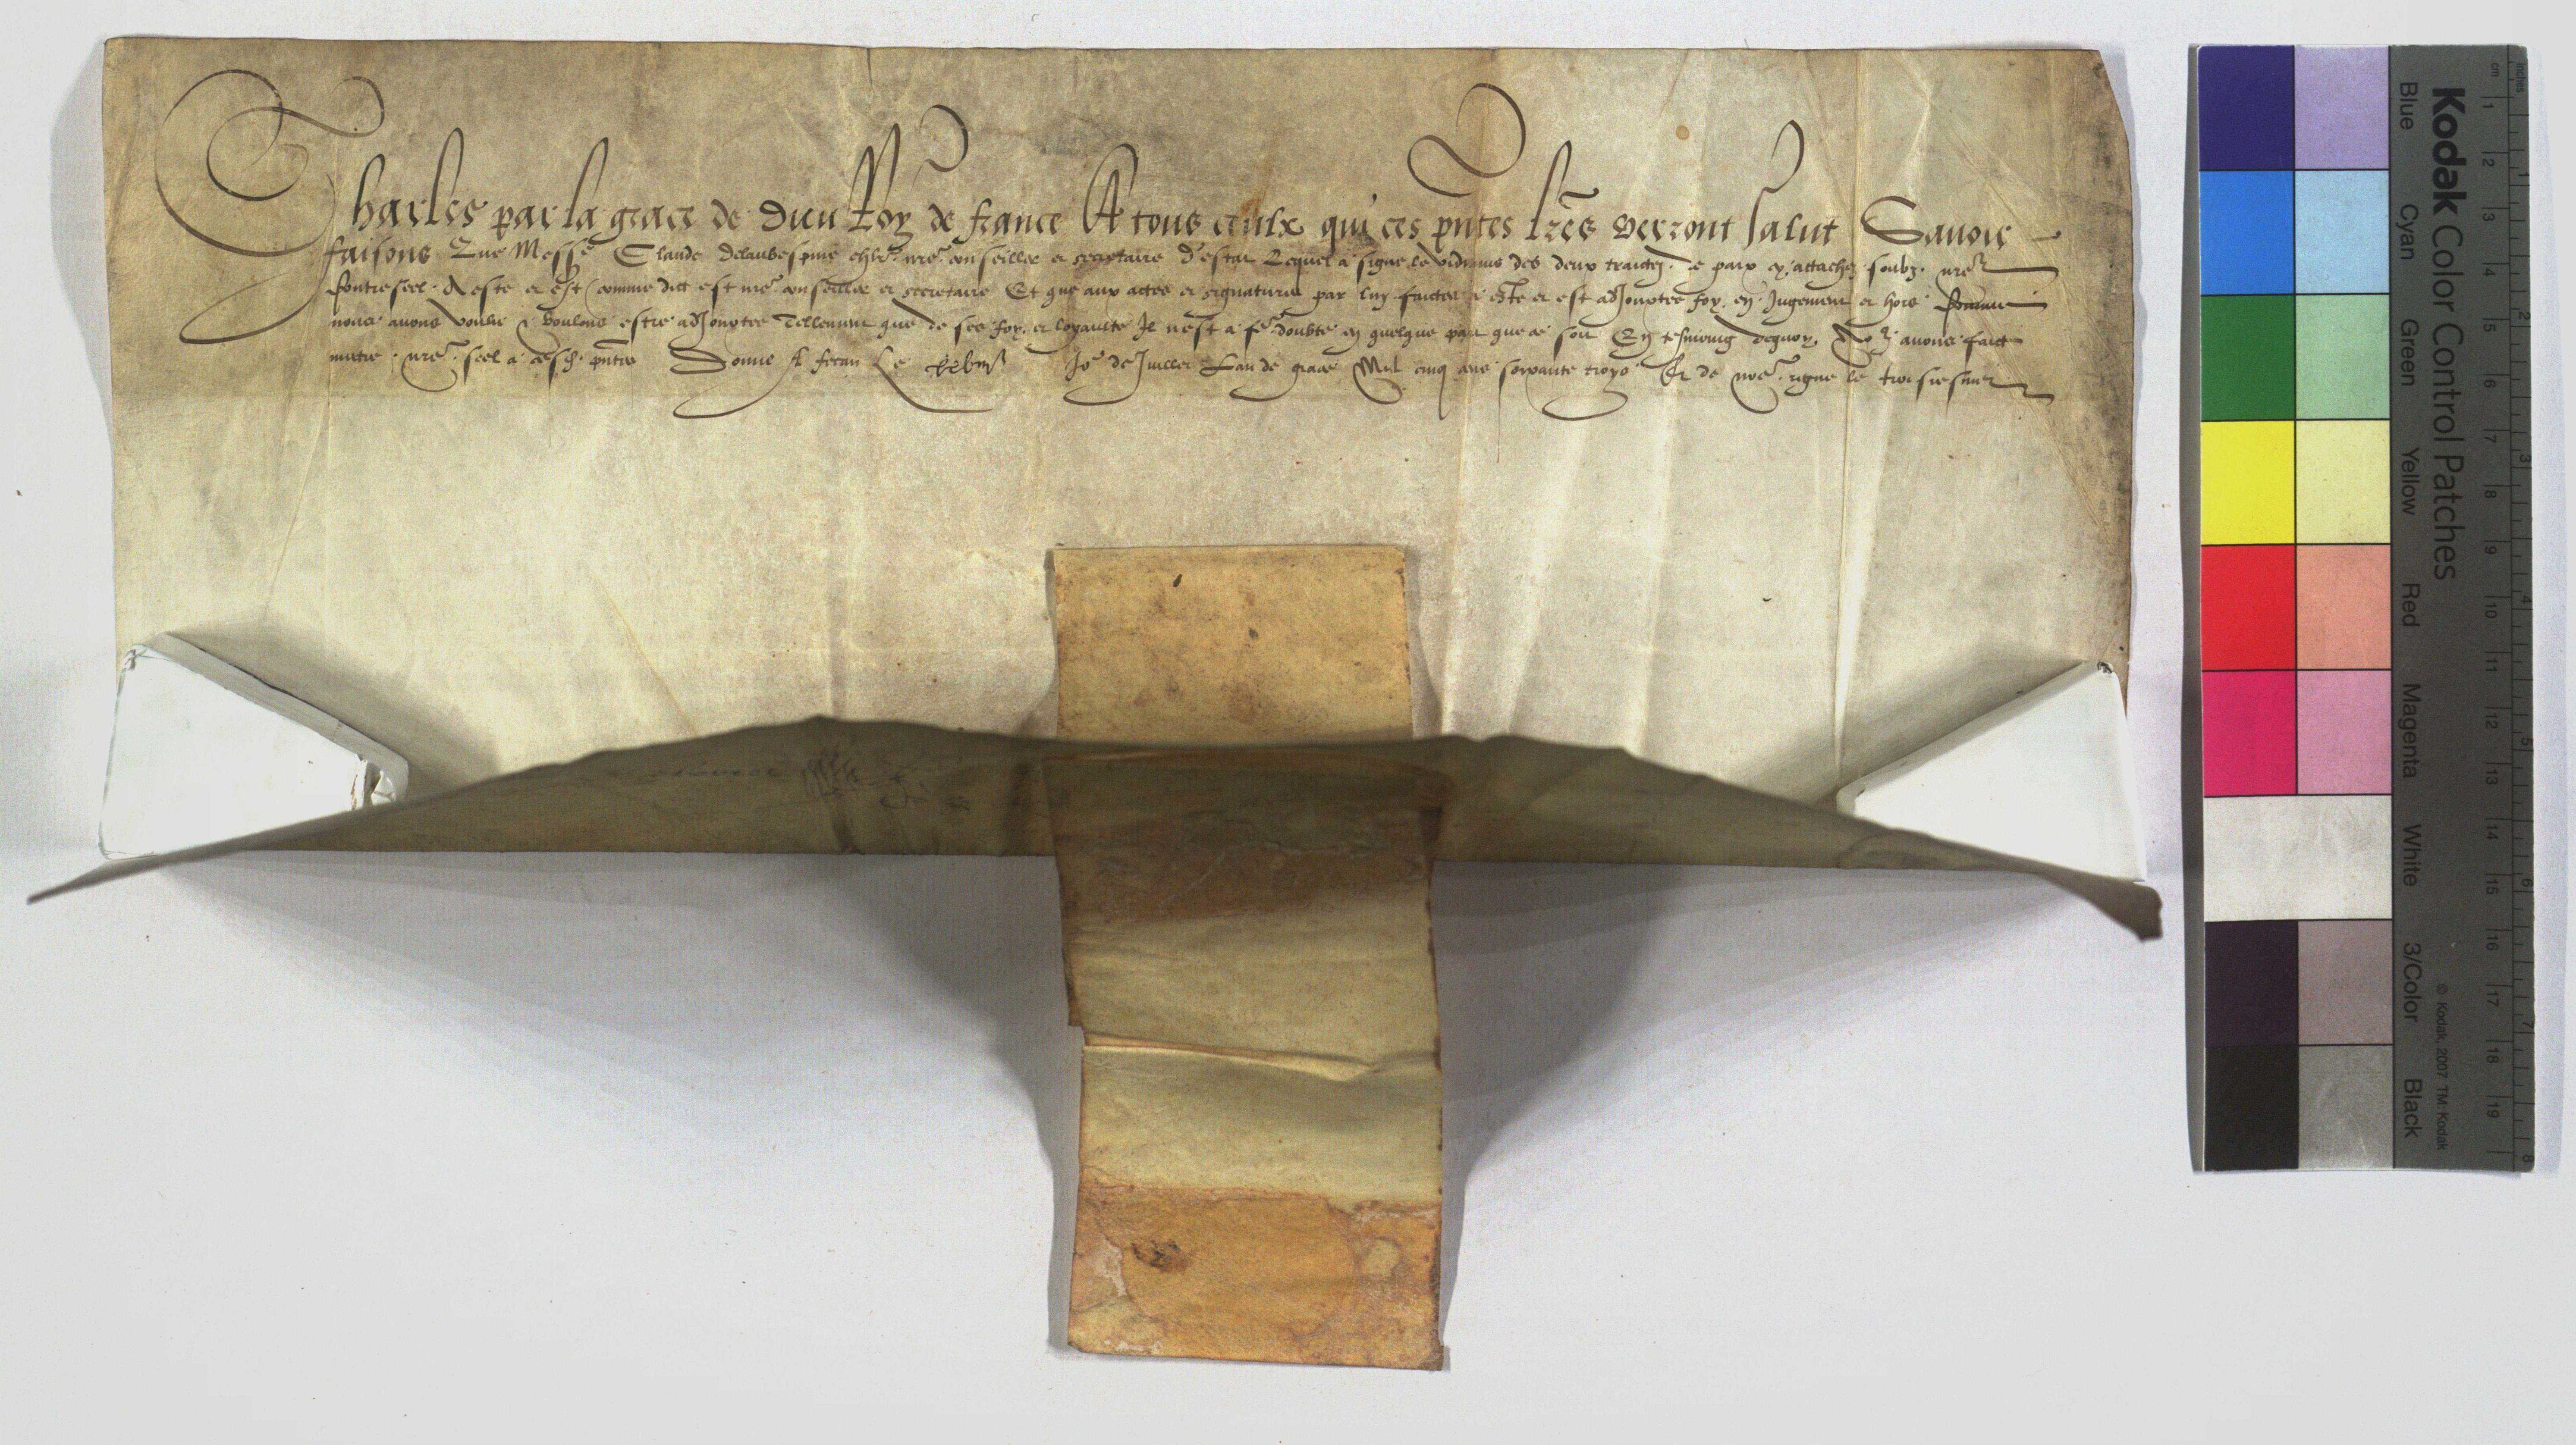 Charles par la grace de Dieu Roy de france A tous ceulx qui ces pntes lrēs verront salut Savoir
faisons Que Messe Claude Delaubespine chlr nrē conseiller et secretaire d'estat Lequel a signe le vidimus des deux traictez de paix cy attachez soubz nrē
contreseel A este et est comme dict est nrē conseiller et secretaire Et que aux actes et signatures par luy faictes a este et est adjoustee foy en Jugement et hors Comme
nous avons voulu & voulons estre adjoustee Tellement que de ses foy et loyaulte Il n'est a fē doubte en quelque part que ce soit En tesmoing dequoy Nous avons faict
mettre nrē seel a cesd pntes Donne A fecan Le Jor de Juillet Lan de grace Mil cinq cens soixante troys Et de nrē regne le troisiesme
Kodak Color Control Patches
Blue Cyan Green Yellow Red Magenta White 3/Color Black
© Kodak, 2007 TM: Kodak
inches 1 2 3 4 5 6 7 8
cm 1 2 3 4 5 6 7 8 9 10 11 12 13 14 15 16 17 18 19